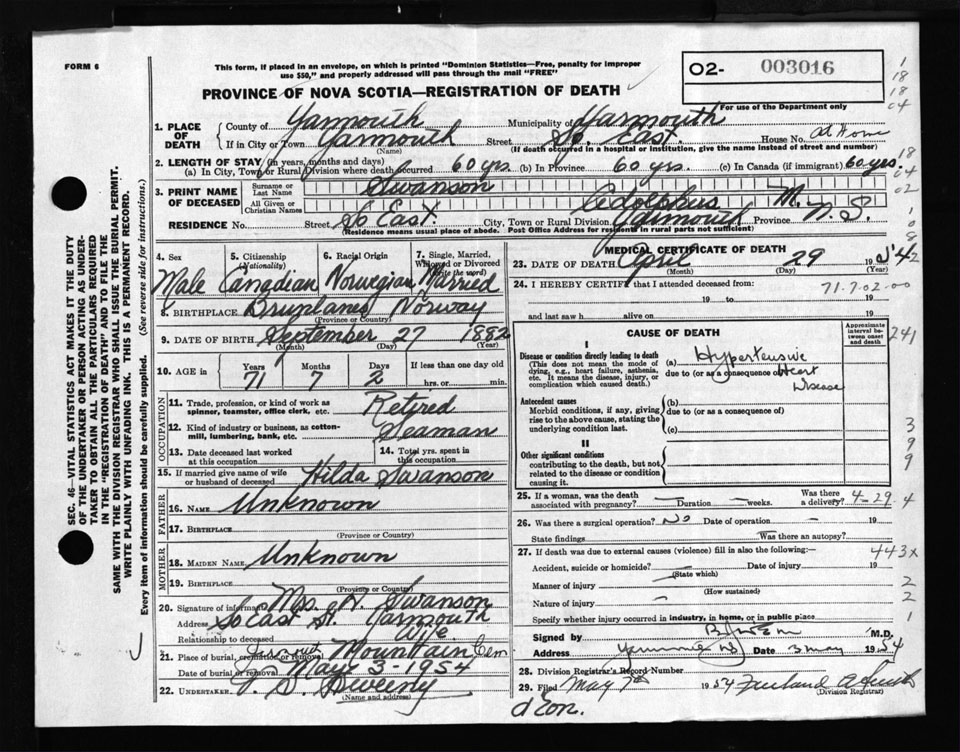 FORM 6
This form, if placed in an envelope, on which is printed "Dominion Statistics—Free, penalty for improper
use $50," and properly addressed will pass through the mail "FREE"
O2- 003016
PROVINCE OF NOVA SCOTIA—REGISTRATION OF DEATH
For use of the Department only
1
18
18
04
18
04
02
1. PLACE OF DEATH
County of Yarmouth Municipality of Yarmouth
If in City or Town Yarmouth Street So. East House No. at Home
(Name) (If death occurred in a hospital or institution, give the name instead of street and number)
2. LENGTH OF STAY (in years, months and days)
(a) In City, Town or Rural Division where death occurred 60 yrs. (b) In Province 60 yrs. (c) In Canada (if immigrant) 60 yrs.
3. PRINT NAME OF DECEASED
Surname or Last Name Swanson
All Given or Christian Names Adolphus M.
RESIDENCE No. Street So East. City, Town or Rural Division Yarmouth Province N.S.
(Residence means usual place of abode. Post Office Address for residents in rural parts not sufficient)
4. Sex
5. Citizenship (Nationality)
6. Racial Origin
7. Single, Married, Widowed or Divorced (Write the word)
Male Canadian Norwegian Married
8. BIRTHPLACE Norway
(Province or Country)
9. DATE OF BIRTH September 27 1882
(Month) (Day) (Year)
10. AGE in Years Months Days If less than one day old
71 7 2 hrs. or min.
OCCUPATION
11. Trade, profession, or kind of work as spinner, teamster, office clerk, etc. Retired
12. Kind of industry or business, as cotton-mill, lumbering, bank, etc. Seaman
13. Date deceased last worked at this occupation
14. Total yrs. spent in this occupation
15. If married give name of wife or husband of deceased Hilda Swanson
FATHER
16. NAME Unknown
17. BIRTHPLACE
(Province or Country)
MOTHER
18. MAIDEN NAME Unknown
19. BIRTHPLACE
(Province or Country)
20. Signature of informant Mrs. H. Swanson
Address So East St. Yarmouth
Relationship to deceased Wife
21. Place of burial, cremation or removal Mountain Cem
Date of burial or removal May 3-1954
22. UNDERTAKER V. S. Sweeny
(Name and address)
MEDICAL CERTIFICATE OF DEATH
23. DATE OF DEATH April 29 1954
(Month) (Day) (Year)
24. I HEREBY CERTIFY that I attended deceased from:
71.7.02.00
19 to 19
and last saw h alive on 19
CAUSE OF DEATH
Approximate interval between onset and death
241
I
Disease or condition directly leading to death
(This does not mean the mode of dying, e.g., heart failure, asthenia, etc. It means the disease, injury, or complication which caused death.)
(a) Hypertensive
due to (or as a consequence of) Heart
Disease
Antecedent causes
Morbid conditions, if any, giving rise to the above cause, stating the underlying condition last.
(b)
due to (or as a consequence of)
(c)
3
9
9
II
Other significant conditions
contributing to the death, but not related to the disease or condition causing it.
25. If a woman, was the death associated with pregnancy? — Duration — weeks. Was there a delivery? 4-29 4
26. Was there a surgical operation? No Date of operation — 19
State findings Was there an autopsy?
27. If death was due to external causes (violence) fill in also the following:—
443x
Accident, suicide or homicide? Date of injury 19
(State which)
Manner of injury 2
(How sustained)
Nature of injury 2
Specify whether injury occurred in industry, in home, or in public place 1
Signed by M.D.
Address Yarmouth NS Date 3 May 1954
28. Division Registrar's Record Number
29. Filed May 7th 1954
(Division Registrar)
d'Eon.
SEC. 46—VITAL STATISTICS ACT MAKES IT THE DUTY
OF THE UNDERTAKER OR PERSON ACTING AS UNDER-
TAKER TO OBTAIN ALL THE PARTICULARS REQUIRED
IN THE "REGISTRATION OF DEATH" AND TO FILE THE
SAME WITH THE DIVISION REGISTRAR WHO SHALL ISSUE THE BURIAL PERMIT.
WRITE PLAINLY WITH UNFADING INK. THIS IS A PERMANENT RECORD.
Every item of information should be carefully supplied. (See reverse side for instructions.)